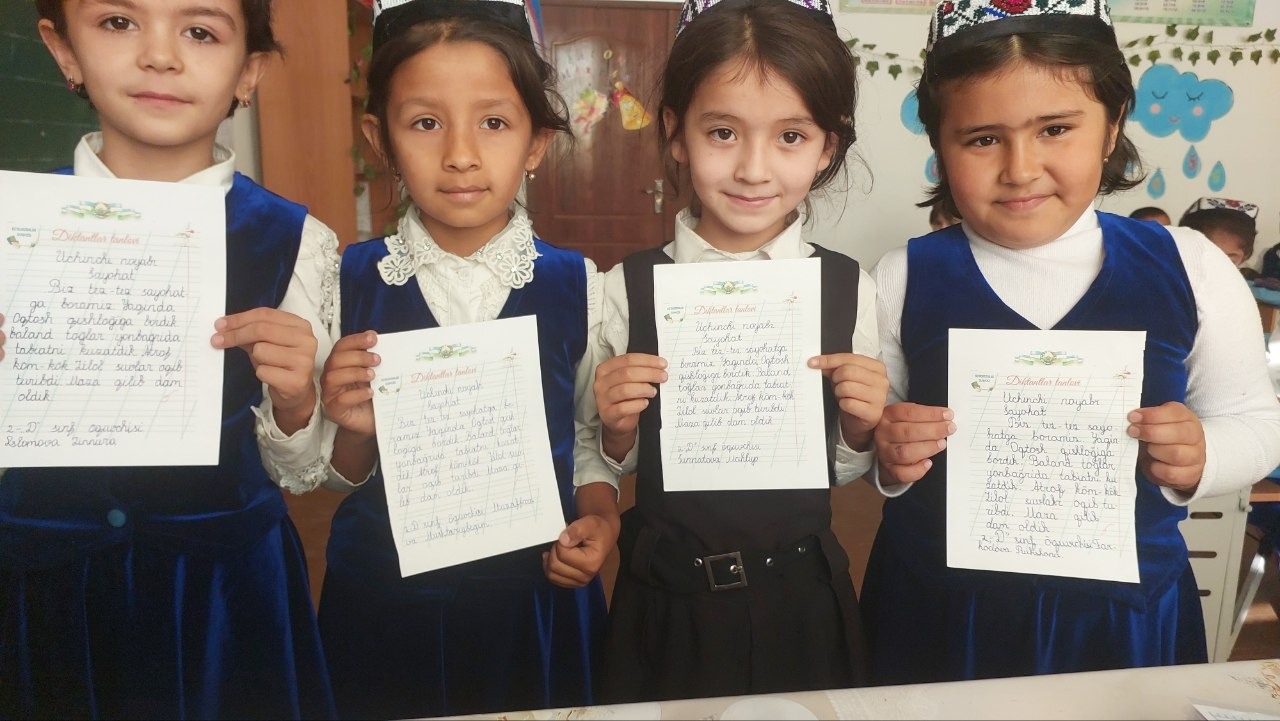 Diktantlar tanlovi
Uchinchi noyabr
Sayohat
Biz tez-tez sayohat-
ga boramiz Yaqinda
Oqtosh qishlog'iga bordik
baland tog'lar yonbag'rida
tabiatni kuzatdik Atrof
kom-kok Zilol suvlar oqib
turibdi Maza qilib dam
oldik
2-"D" sinf oquvchisi
Islomova Dinnura
Diktantlar tanlovi
Uchinchi noyabr
Sayohat
Biz tez-tez sayohatga bo-
ramiz Yaqinda Oqtosh qish
logiga bordik Baland toglar
yonbagrida tabiatni kuzat
dik Atrof komkok Zilol suv
lar oqib turibdi Maza qi-
lib dam oldik
2-D sinf oquvchisi Muzaffaro
va
Diktantlar tanlovi
Uchinchi noyabr
Sayohat
Biz tez-tez sayohatga
boramiz Yaqinda Oqtosh
qishlogiga bordik Baland
toglar yonbagrida tabiat
ni kuzatdik Atrof kom-kok
Zilol suvlar oqib turibdi
Maza qilib dam oldik
2-"D" sinf oquvchisi
Diktantlar tanlovi
Uchinchi noyabr
Sayohat
Biz tez-tez sayo-
hatga boramiz Yaqin
da Oqtosh qishlogiga
bordik Baland toglar
yonbagrida tabiatni ku
zatdik Atrof kom-kok
Zilol suvlar oqib tu-
ribdi Maza qilib
dam oldik
2-"D" sinf oquvchisi Far-
hodova